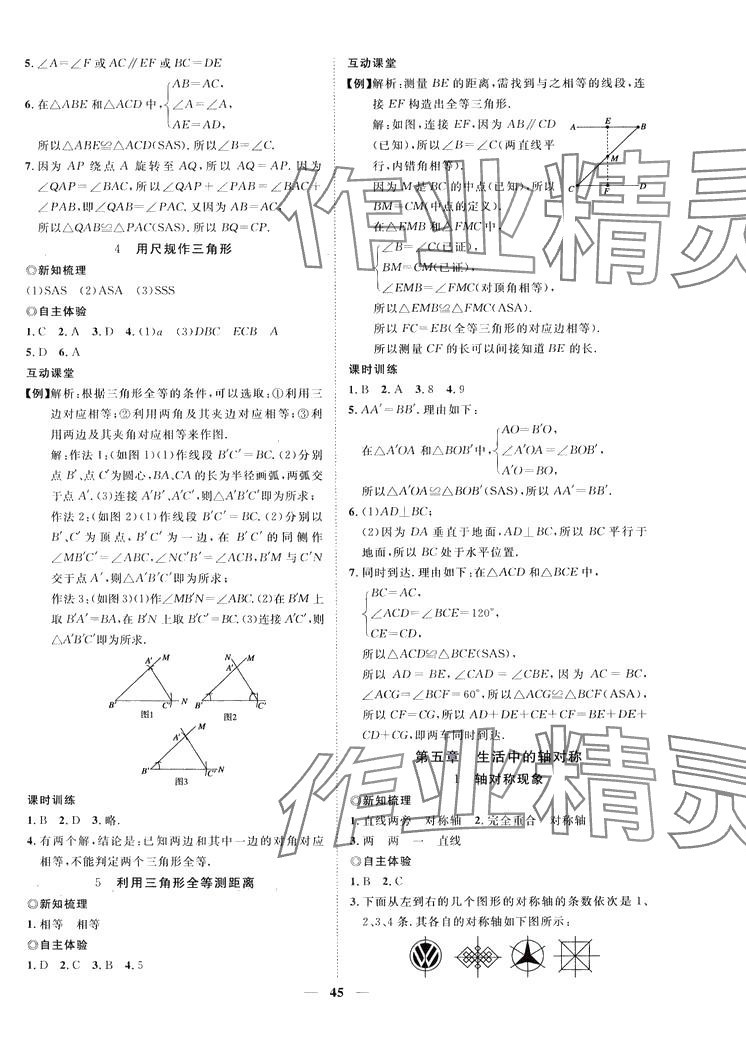 5. ∠A=∠F 或 AC∥EF 或 BC=DE
6. 在△ABE 和△ACD 中,{AB=AC,
∠A=∠A,
AE=AD,
所以△ABE≌△ACD(SAS). 所以∠B=∠C.
7. 因为 AP 绕点 A 旋转至 AQ, 所以 AQ=AP. 因为
∠QAP=∠BAC, 所以∠QAP+∠PAB=∠BAC+
∠PAB, 即∠QAB=∠PAC. 又因为 AB=AC,
所以△QAB≌△PAC(SAS). 所以 BQ=CP.
4 用尺规作三角形
◎新知梳理
(1)SAS (2)ASA (3)SSS
◎自主体验
1. C 2. A 3. D 4. (1)a (3)DBC ECB A
5. D 6. A
互动课堂
【例】解析:根据三角形全等的条件,可以选取:①利用三
边对应相等;②利用两角及其夹边对应相等;③利
用两边及其夹角对应相等来作图.
解:作法 1:(如图 1)(1)作线段 B′C′=BC. (2)分别
以点 B′、点 C′为圆心,BA、CA 的长为半径画弧,两弧交
于点 A′. (3)连接 A′B′、A′C′,则△A′B′C′即为所求;
作法 2:(如图 2)(1)作线段 B′C′=BC. (2)分别以
B′、C′为顶点,B′C′为一边,在 B′C′的同侧作
∠MB′C′=∠ABC,∠NC′B′=∠ACB,B′M 与 C′N
交于点 A′,则△A′B′C′即为所求;
作法 3:(如图 3)(1)作∠MB′N=∠ABC. (2)在 B′M 上
取 B′A′=BA,在 B′N 上取 B′C′=BC. (3)连接 A′C′,则
△A′B′C′即为所求.
A′ M B′ C′ N 图1
N M A′ B′ C′ 图2
A′ M B′ C′ N 图3
课时训练
1. B 2. D 3. 略.
4. 有两个解,结论是:已知两边和其中一边的对角对应
相等,不能判定两个三角形全等.
5 利用三角形全等测距离
◎新知梳理
1. 相等 相等
◎自主体验
1. D 2. C 3. B 4. 5
互动课堂
【例】解析:测量 BE 的距离,需找到与之相等的线段,连
接 EF 构造出全等三角形.
解:如图,连接 EF,因为 AB∥CD
(已知),所以∠B=∠C(两直线平
行,内错角相等).
因为 M 是 BC 的中点(已知),所以
BM=CM(中点的定义).
A E B M C F D
在△EMB 和△FMC 中,
{∠B=∠C(已证),
BM=CM(已证),
∠EMB=∠FMC(对顶角相等),
所以△EMB≌△FMC(ASA).
所以 FC=EB(全等三角形的对应边相等).
所以测量 CF 的长可以间接知道 BE 的长.
课时训练
1. B 2. A 3. 8 4. 9
5. AA′=BB′. 理由如下:
在△A′OA 和△BOB′中,{AO=B′O,
∠A′OA=∠B′OB,
A′O=BO,
所以△A′OA≌△BOB′(SAS),所以 AA′=BB′.
6. (1)AD⊥BC;
(2)因为 DA 垂直于地面,AD⊥BC,所以 BC 平行于
地面,所以 BC 处于水平位置.
7. 同时到达. 理由如下:在△ACD 和△BCE 中,
{BC=AC,
∠ACD=∠BCE=120°,
CE=CD,
所以△ACD≌△BCE(SAS),
所以 AD=BE,∠CAD=∠CBE,因为 AC=BC,
∠ACG=∠BCF=60°,所以△ACG≌△BCF(ASA),
所以 CF=CG,所以 AD+DE+CE+CF=BE+DE+
CD+CG,即两车同时到达.
第五章 生活中的轴对称
1 轴对称现象
◎新知梳理
1. 直线两旁 对称轴 2. 完全重合 对称轴
3. 两 两 一 直线
◎自主体验
1. B 2. C
3. 下面从左到右的几个图形的对称轴的条数依次是 1、
2、3、4 条. 其各自的对称轴如下图所示:
45
作业精灵
作业精灵